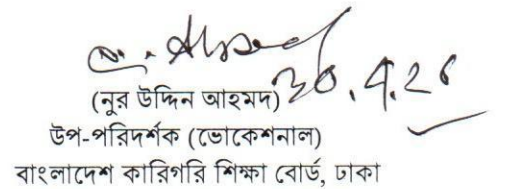 (নুর উদ্দিন আহমদ)
উপ-পরিদর্শক (ভোকেশনাল)
বাংলাদেশ কারিগরি শিক্ষা বোর্ড, ঢাকা